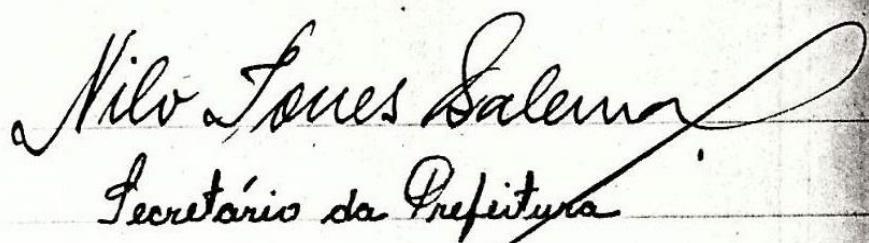 Nilo Torres Salema
Secretário da Prefeitura